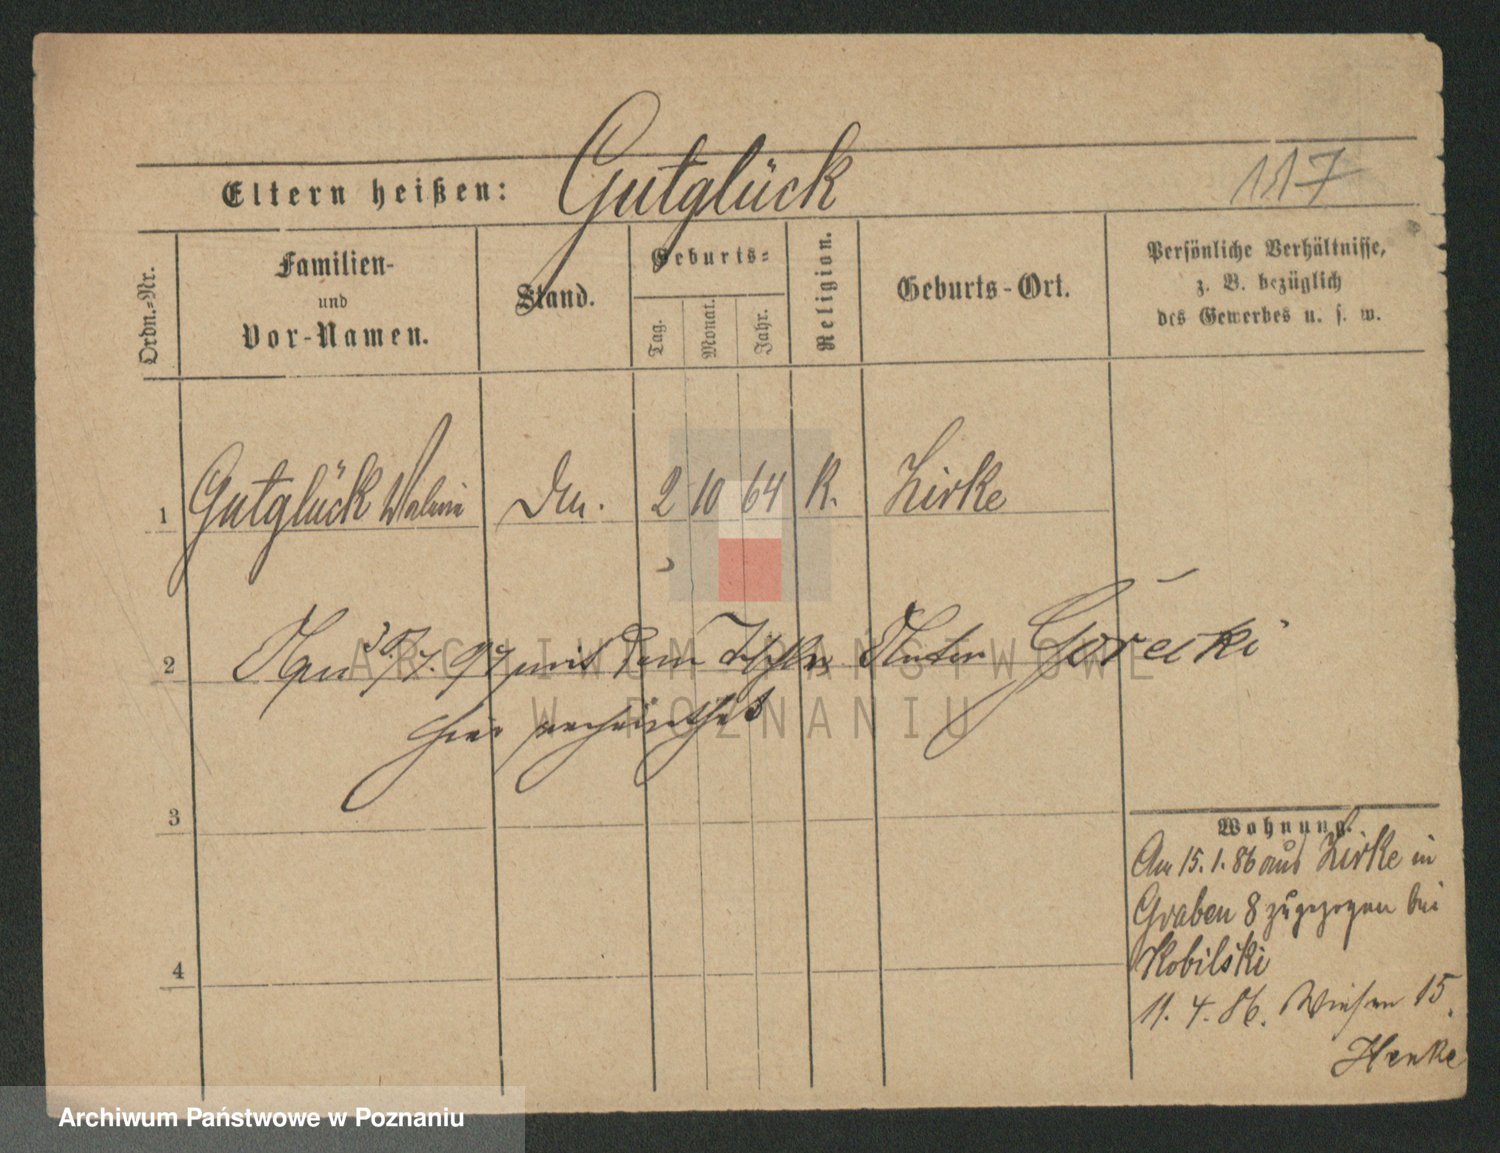 117
Eltern heißen: Gutglück
Ordn.-Nr.
Familien-
und
Vor-Namen.
Stand.
Geburts-
Tag.
Monat.
Jahr.
Religion.
Geburts-Ort.
Persönliche Verhältnisse,
z. B. bezüglich
des Gewerbes u. s. w.
1 Gutglück 2 10 64 K. Zirke
2 97 mit dem Górecki
hier
3
4
Wohnung.
Am 15.1.86 aus Zirke in
Graben 8 zugezogen bei
Kobilski
11.4.86. Wiesen 15.
Henke
ARCHIWUM PAŃSTWOWE
W POZNANIU
Archiwum Państwowe w Poznaniu